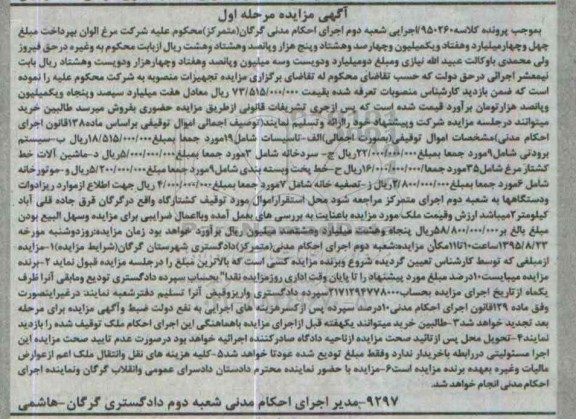 آگهی مزایده مرحله اول
بموجب پرونده کلاسه ۹۵۰۲۶۰/اجرایی شعبه دوم اجرای احکام مدنی گرگان(متمرکز)محکوم علیه شرکت مرغ الوان بپرداخت مبلغ
چهل وچهارمیلیارد وهفتاد ویکمیلیون وچهارصد وهشتاد وپنج هزار وپانصد وهشتاد وهشت ریال ازبابت محکوم به وغیره درحق فیروز
ولی محمدی باوکالت عبید الله نیازی ومبلغ دومیلیارد ودویست وسه میلیون وپانصد وهفتاد وچهارهزار ودویست وهشتاد ریال بابت
نیمعشر اجرائی درحق دولت که حسب تقاضای محکوم له تقاضای برگزاری مزایده تجهیزات منصوبه به شرکت محکوم علیه را نموده
است که ضمن بازدید کارشناس منصوبات تعرفه شده بقیمت ۷۳/۵۱۵/۰۰۰/۰۰۰ ریال معادل هفت میلیارد سیصد وپنجاه ویکمیلیون
وپانصد هزارتومان برآورد قیمت شده است که پس ازجری تشریفات قانونی ازطریق مزایده حضوری بفروش میرسد طالبین خرید
میتوانند درجلسه مزایده شرکت وپیشنهاد خود راارائه وتسلیم نمایند(توصیف اجمالی اموال توقیفی براساس ماده۱۳۸قانون اجرای
احکام مدنی)مشخصات اموال توقیفی(بصورت اجمالی)الف-تاسیسات شامل۱۹مورد جمعا بمبلغ۱۸/۵۱۵/۰۰۰/۰۰۰ریال ب-سیستم
برودتی شامل۹مورد جمعا بمبلغ۲۲/۰۰۰/۰۰۰/۰۰۰ریال ج- سردخانه شامل ۳مورد جمعا بمبلغ۵/۰۰۰/۰۰۰/۰۰۰ریال د-ماشین آلات خط
کشتار مرغ شامل۳۵مورد جمعا۱۶/۰۰۰/۰۰۰/۰۰۰ریال ح-خط پخت وبسته بندی شامل۹مورد جمعا مبلغ۵/۲۰۰/۰۰۰/۰۰۰ریال و-موتورخانه
شامل ۶مورد جمعا بمبلغ۲/۸۰۰/۰۰۰/۰۰۰ریال ز-تصفیه خانه شامل ۷مورد جمعا بمبلغ ۴/۰۰۰/۰۰۰/۰۰۰ ریال جهت اطلاع ازموارد ریزادوات
ودستگاهها به شعبه دوم اجرای متمرکز مراجعه شود محل استقراراموال مورد توقیف کشتارگاه واقع درگرگان قرق جاده قلی آباد
کیلومتر۲میباشد ارزش وقیمت ملک مورد مزایده باعنایت به بررسی های بعمل آمده وبااعمال ضرایبی برای مزایده وسهل البیع بودن
مبلغ بالغ بر۵۸/۸۰۰/۰۰۰/۰۰۰ریال پنجاه وهشت میلیارد وهشتصد میلیون ریال برآورد خواهد بود زمان مزایده:روزدوشنبه مورخه
۱۳۹۵/۸/۲۳ساعت۱۰تا۱۱مکان مزایده:شعبه دوم اجرای احکام مدنی(متمرکز)دادگستری شهرستان گرگان(شرایط مزایده)۱-مزایده
ازمبلغی که توسط کارشناس تعیین گردیده شروع وبرنده مزایده کسی است که بالاترین مبلغ را درجلسه مزایده قبول نماید ۲-برنده
مزایده میبایست۱۰درصد مبلغ مورد پیشنهاد را تا پایان وقت اداری روزمزایده نقدا"بحساب سپرده دادگستری تودیع ومابقی آنرا ظرف
یکماه ازتاریخ اجرای مزایده بحساب۲۱۷۱۲۹۴۷۷۸۰۰۰سپرده دادگستری واریزوفیش آنرا تسلیم دفترشعبه نمایند درغیراینصورت
وفق ماده ۱۲۹قانون اجرای احکام مدنی۱۰درصد سپرده پس ازکسرهزینه های اجرایی به نفع دولت ضبط وآگهی مزایده برای مرحله
بعد تجدید خواهد شد۳-طالبین خرید میتوانند یکهفته قبل ازاجرای مزایده باهماهنگی این اجرای احکام ملک توقیف شده را بازدید
نمایند۴-تحویل محل پس ازتائید صحت مزایده ازناحیه دادگاه صادرکننده اجرائیه خواهد بود درصورت عدم تایید صحت مزایده این
اجرا مسئولیتی دررابطه باخریدار ندارد وفقط مبلغ تودیع شده عودتا خواهد شد۵-کلیه هزینه های نقل وانتقال ملک اعم ازعوارض
مالیات وغیره بعهده برنده مزایده است۶-مزایده با حضور نماینده محترم دادستان دادسرای عمومی وانقلاب گرگان ونماینده اجرای
احکام مدنی انجام خواهد شد.
۹۲۹۷-مدیر اجرای احکام مدنی شعبه دوم دادگستری گرگان-هاشمی